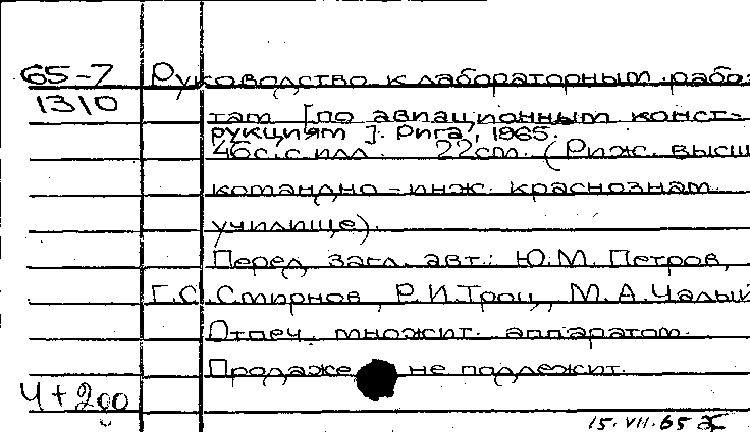 65-7 Руководство к лабораторным рабо-
1310
там [по авиационным конст-
рукциям]. Рига, 1965.
46с. с илл. 22cm. (Риж. высш
командно-инж. краснознам.
училище).
Перед загл. авт.: Ю.М. Петров,
Г.С. Смирнов, Р.И. Троц, М.А. Чалый
Отпеч. множит. аппаратом.
Продаже не подлежит.
4+200
15.VII.65